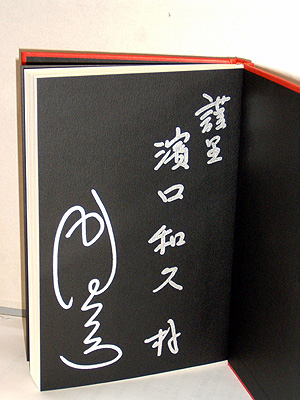 謹呈
濱口和久 様